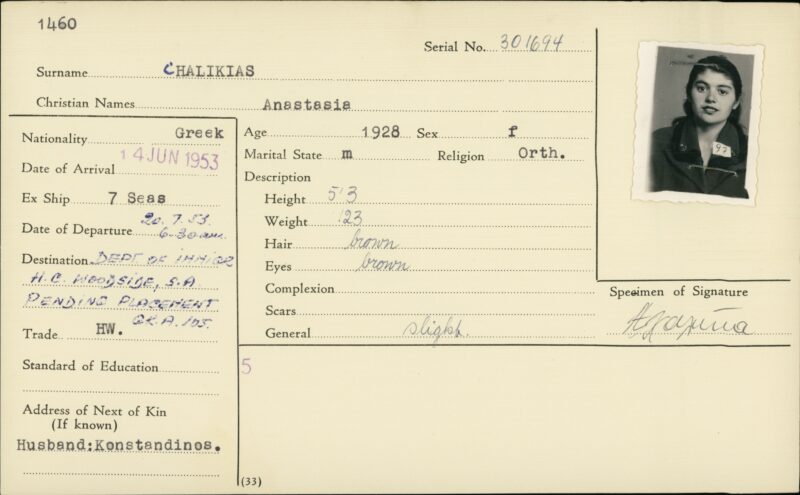 1460
Serial No. 301694
Surname CHALIKIAS
Christian Names Anastasia
Nationality Greek
Date of Arrival 14 JUN 1953
Ex Ship 7 Seas
Date of Departure 20.7.53. 6-30am.
Destination DEPT OF IMMIG
H.C. WOODSIDE, S.A.
PENDING PLACEMENT
Trade HW.
Standard of Education
Address of Next of Kin
(If known)
Husband:Konstandinos.
Age 1928 Sex f
Marital State m Religion Orth.
Description
Height 5'3
Weight 123
Hair brown
Eyes brown
Complexion
Scars
General slight.
5
(33)
97
Specimen of Signature